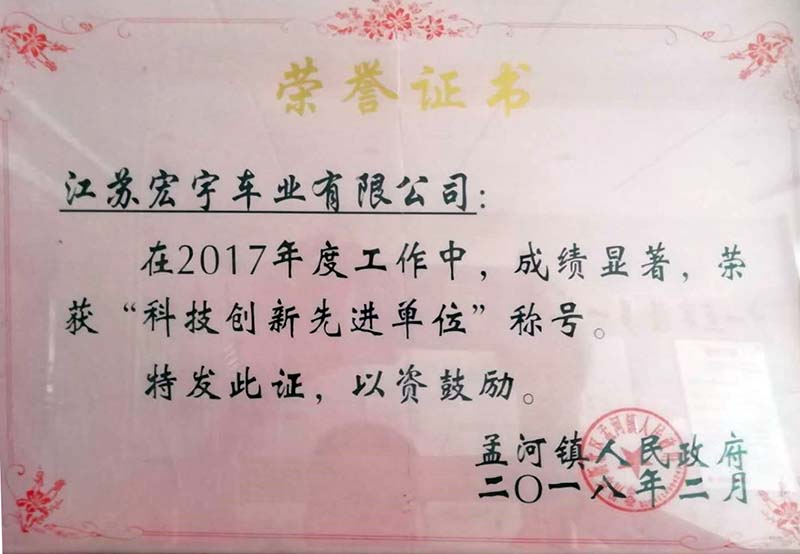 荣誉证书
江苏宏宇车业有限公司：
在2017年度工作中，成绩显著，荣
获“科技创新先进单位”称号。
特发此证，以资鼓励。
孟河镇人民政府
二〇一八年二月